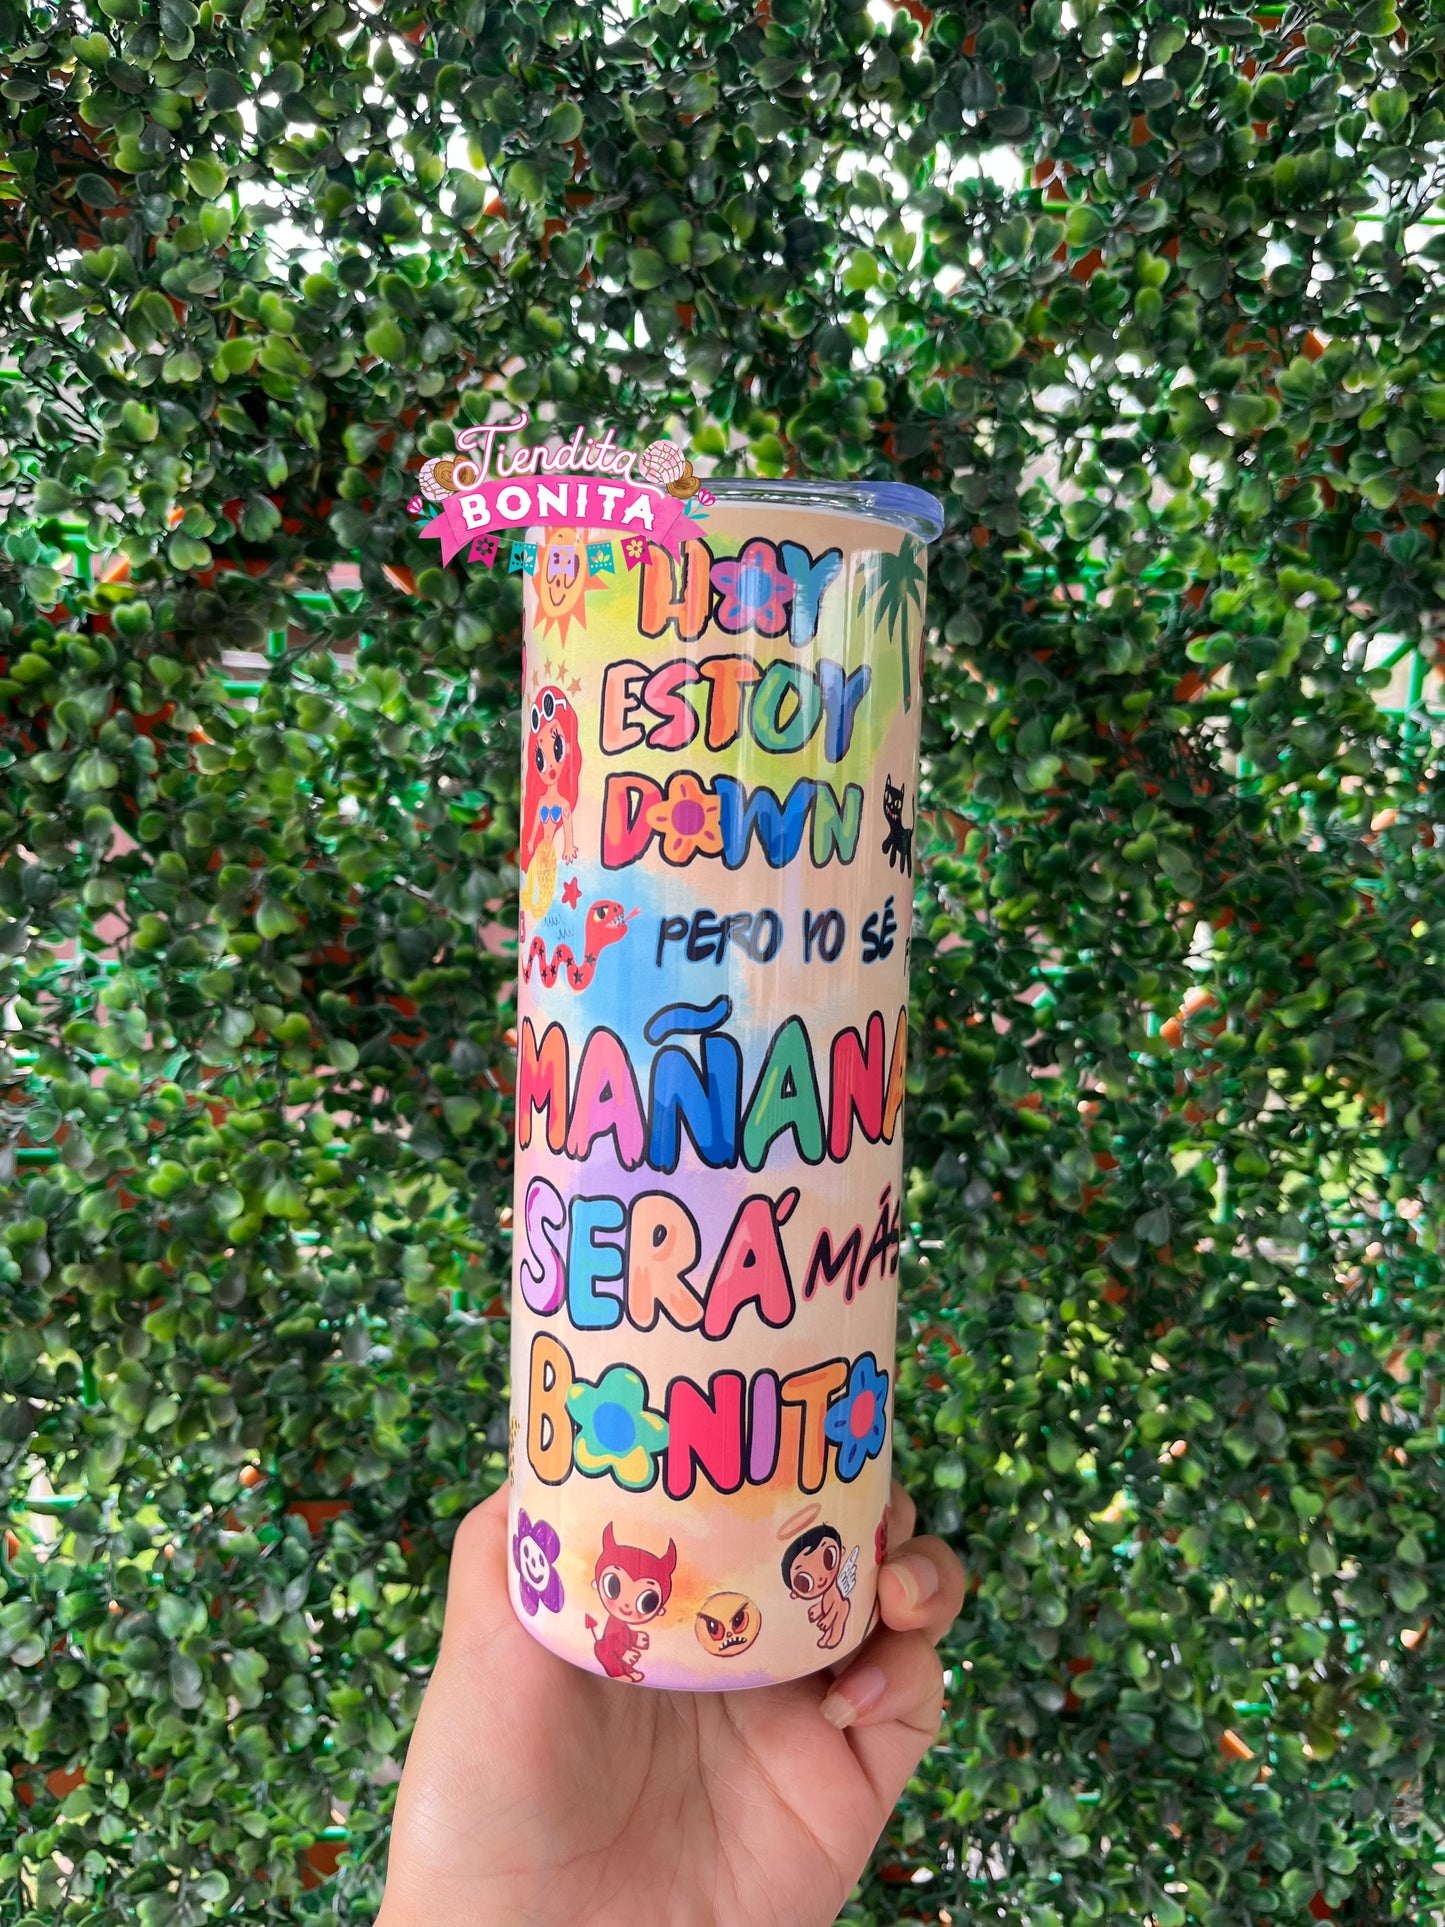 Tiendita
BONITA
HOY
ESTOY
DOWN
PERO YO SÉ
MAÑANA
SERÁ MÁS
BONITO